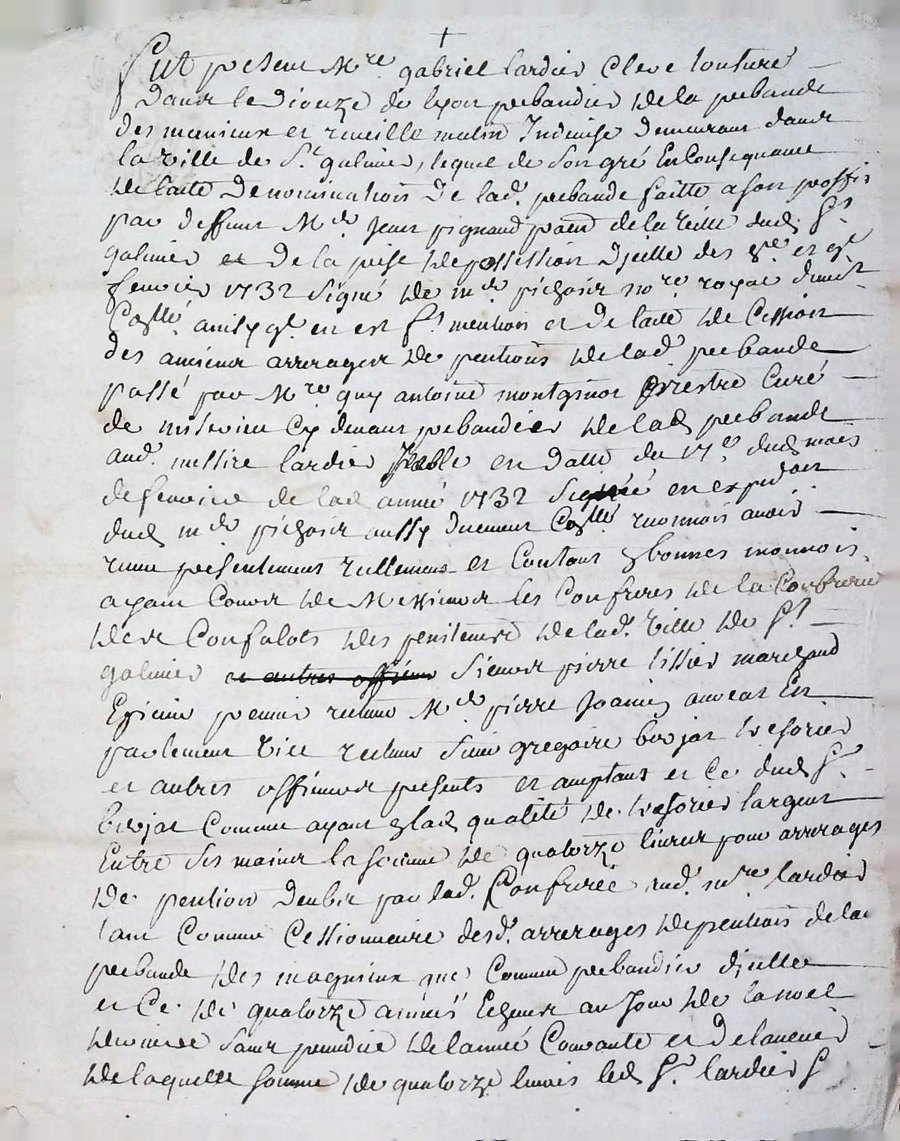 +
Fut present Mre gabriel lardier Clerc tonsuré
Dans le Dioceze de lyon prebandier de la prebande
des manieux et reveille matin Indivise Demeurant dans
la ville de St galmier, lequel de son gré En Consequance
de lacte Denomination De lad. prebande faitte a son proffit
par deffunt Me Jean pignand de la ville dud. St
galmier et de la prise de possession Dicelle des et
fevrier 1732 signé de me pichoir nore royal
ainsy ql en est ft mention et de lacte de Cession
des anciens arrerages de pentions de lad. prebande
passé par Mre guy antoine Prestre Curé
de miserieu Cy devant prebandier de lad. prebande
aud. messire lardier en datte du 17e dud. mois
de fevrier de lad. année 1732 signé en expedition
dud. me pichoir aussy Duement reconnois avoir
receu presentement reellement et Contant bonnes monnois
ayant Cours de Messieurs les Confreres de la Confrerie
des Confalots des penitents de lad. ville de St
galmier et autres officiers Sieurs pierre tissier marchand
Epicier premier recteur Me pierre Joanin avocat En
parlement vice recteur Sieur gregoire berjat tresorier
et autres officiers presents et acceptans et Ce dud. Sr
berjat Comme ayant lad. qualité de tresorier largent
Entre ses mains la somme de quatorze livres pour arrerages
De pention Deubs par lad. Confrerie aud. mre lardier
tant Comme Cessionnaire desd. arrerages de pentions de la
prebande des magnieux que Comme prebandier dicelle
et Ce de quatorze années Echeues au Jour de la noel
derniere sans prejudice de lannée Courante et de lavenir
de laquelle somme de quatorze livres led. Sr lardier S